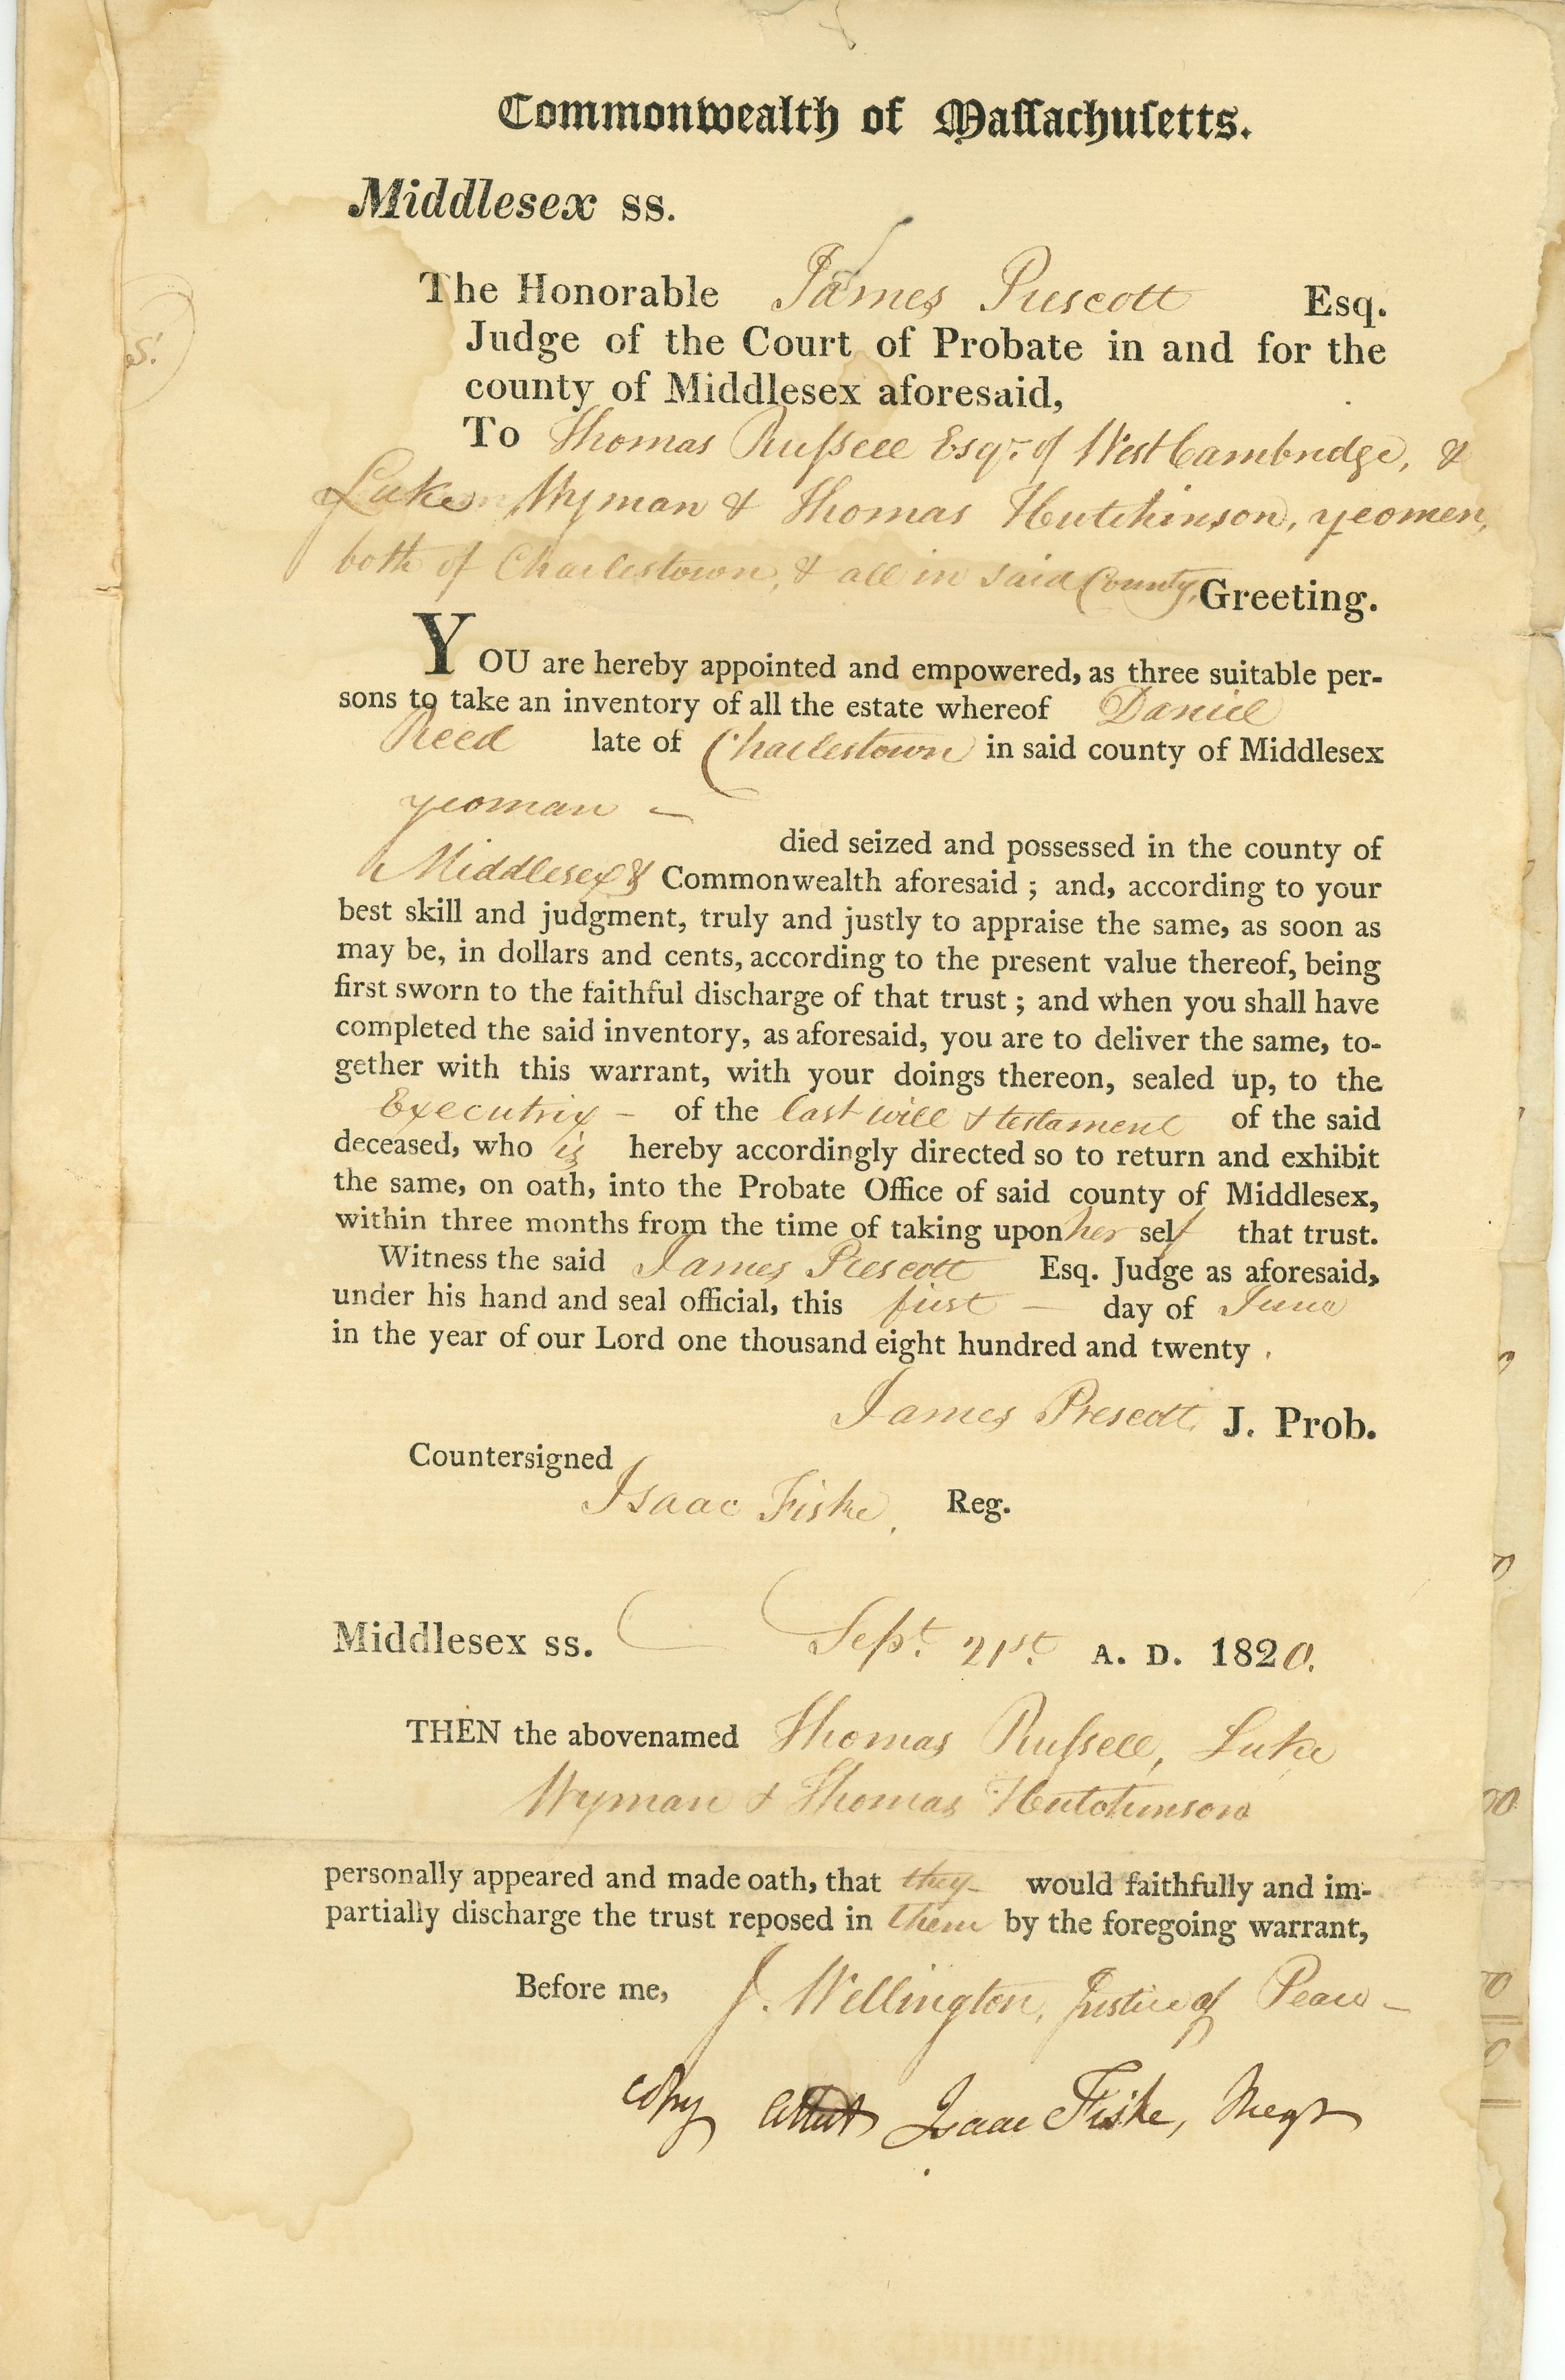 Commonwealth of Maſſachuſetts.
Middlesex ss.
The Honorable James Prescott Esq.
Judge of the Court of Probate in and for the
county of Middlesex aforesaid,
To Thomas Ruſsell Esqr. of West Cambridge, &
Luke Wyman & Thomas Hutchinson, yeomen,
both of Charlestown, & all in said County, Greeting.
YOU are hereby appointed and empowered, as three suitable per-
sons to take an inventory of all the estate whereof Daniel
Reed late of Charlestown in said county of Middlesex
yeoman –
died seized and possessed in the county of
Middlesex & Commonwealth aforesaid ; and, according to your
best skill and judgment, truly and justly to appraise the same, as soon as
may be, in dollars and cents, according to the present value thereof, being
first sworn to the faithful discharge of that trust ; and when you shall have
completed the said inventory, as aforesaid, you are to deliver the same, to-
gether with this warrant, with your doings thereon, sealed up, to the
Executrix – of the last will & testament of the said
deceased, who is hereby accordingly directed so to return and exhibit
the same, on oath, into the Probate Office of said county of Middlesex,
within three months from the time of taking upon her self that trust.
Witness the said James Prescott Esq. Judge as aforesaid,
under his hand and seal official, this first – day of June
in the year of our Lord one thousand eight hundred and twenty .
James Prescott J. Prob.
Countersigned
Isaac Fiske, Reg.
Middlesex ss. Sept. 21st. A. D. 1820.
THEN the abovenamed Thomas Ruſsell, Luke
Wyman & Thomas Hutchinson
personally appeared and made oath, that they – would faithfully and im-
partially discharge the trust reposed in them by the foregoing warrant,
Before me, J. Wellington, Justice of Peace –
Copy Attest Isaac Fiske, Regr